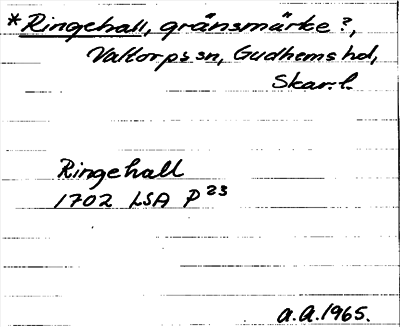 *Ringehall, gränsmärke?,
Valtorps sn, Gudhems hd,
Skar. l.
Ringehall
1702 LSA P 23
A.A. 1965.